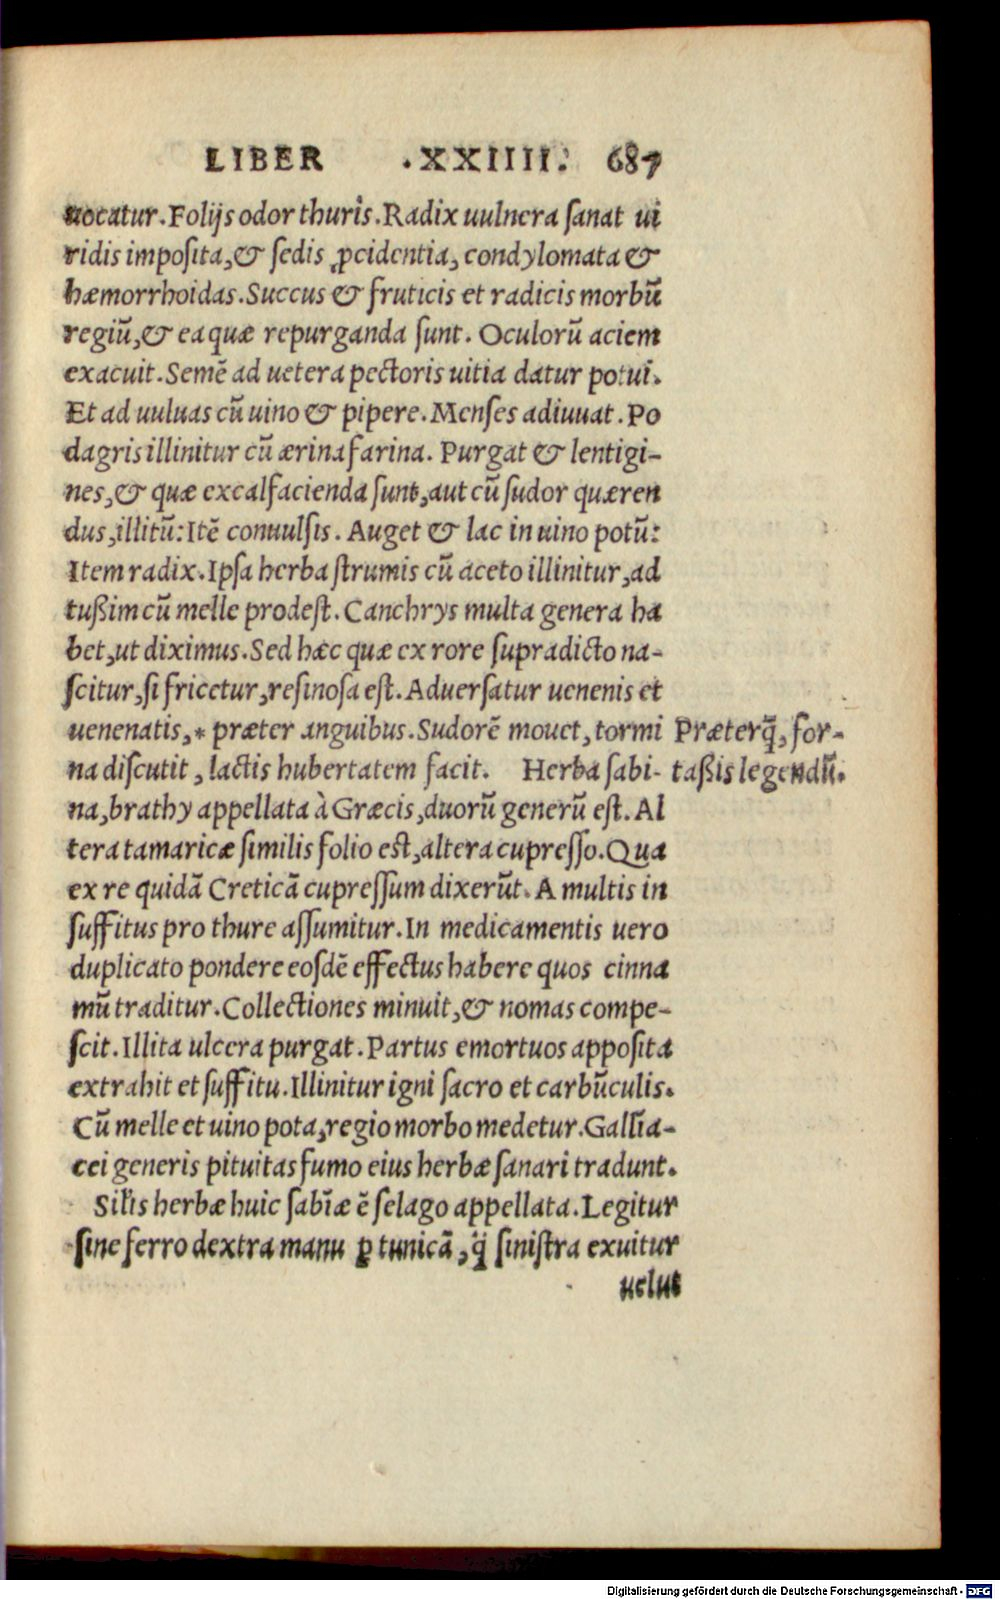 LIBER .XXIIII. 687
uocatur. Folijs odor thuris. Radix uulnera sanat ui
ridis imposita, & sedis ꝓcidentia, condylomata &
hæmorrhoidas. Succus & fruticis et radicis morbū
regiū, & ea quæ repurganda sunt. Oculorū aciem
exacuit. Semē ad uetera pectoris uitia datur potui.
Et ad uuluas cū uino & pipere. Menses adiuuat. Po
dagris illinitur cū ærina farina. Purgat & lentigi-
nes, & quæ excalfacienda sunt, aut cū sudor quæren
dus, illitū: Itē conuulsis. Auget & lac in uino potū:
Item radix. Ipsa herba strumis cū aceto illinitur, ad
tußim cū melle prodest. Canchrys multa genera ha
bet, ut diximus. Sed hæc quæ ex rore supradicto na-
scitur, si fricetur, resinosa est. Aduersatur uenenis et
uenenatis, * præter anguibus. Sudorē mouet, tormi
na discutit, lactis hubertatem facit. Herba sabi-
Præterq̄, for-
taßis legendū.
na, brathy appellata à Græcis, duorū generū est. Al
tera tamaricæ similis folio est, altera cupresso. Qua
ex re quidā Creticā cupressum dixerūt. A multis in
suffitus pro thure assumitur. In medicamentis uero
duplicato pondere eosdē effectus habere quos cinna
mū traditur. Collectiones minuit, & nomas compe-
scit. Illita ulcera purgat. Partus emortuos apposita
extrahit et suffitu. Illinitur igni sacro et carbūculis.
Cū melle et uino pota, regio morbo medetur. Gallīa-
cei generis pituitas fumo eius herbæ sanari tradunt.
Sil'is herbæ huic sabīæ ē selago appellata. Legitur
sine ferro dextra manu ꝑ tunicā, q̈ sinistra exuitur
uelut
Digitalisierung gefördert durch die Deutsche Forschungsgemeinschaft - DFG